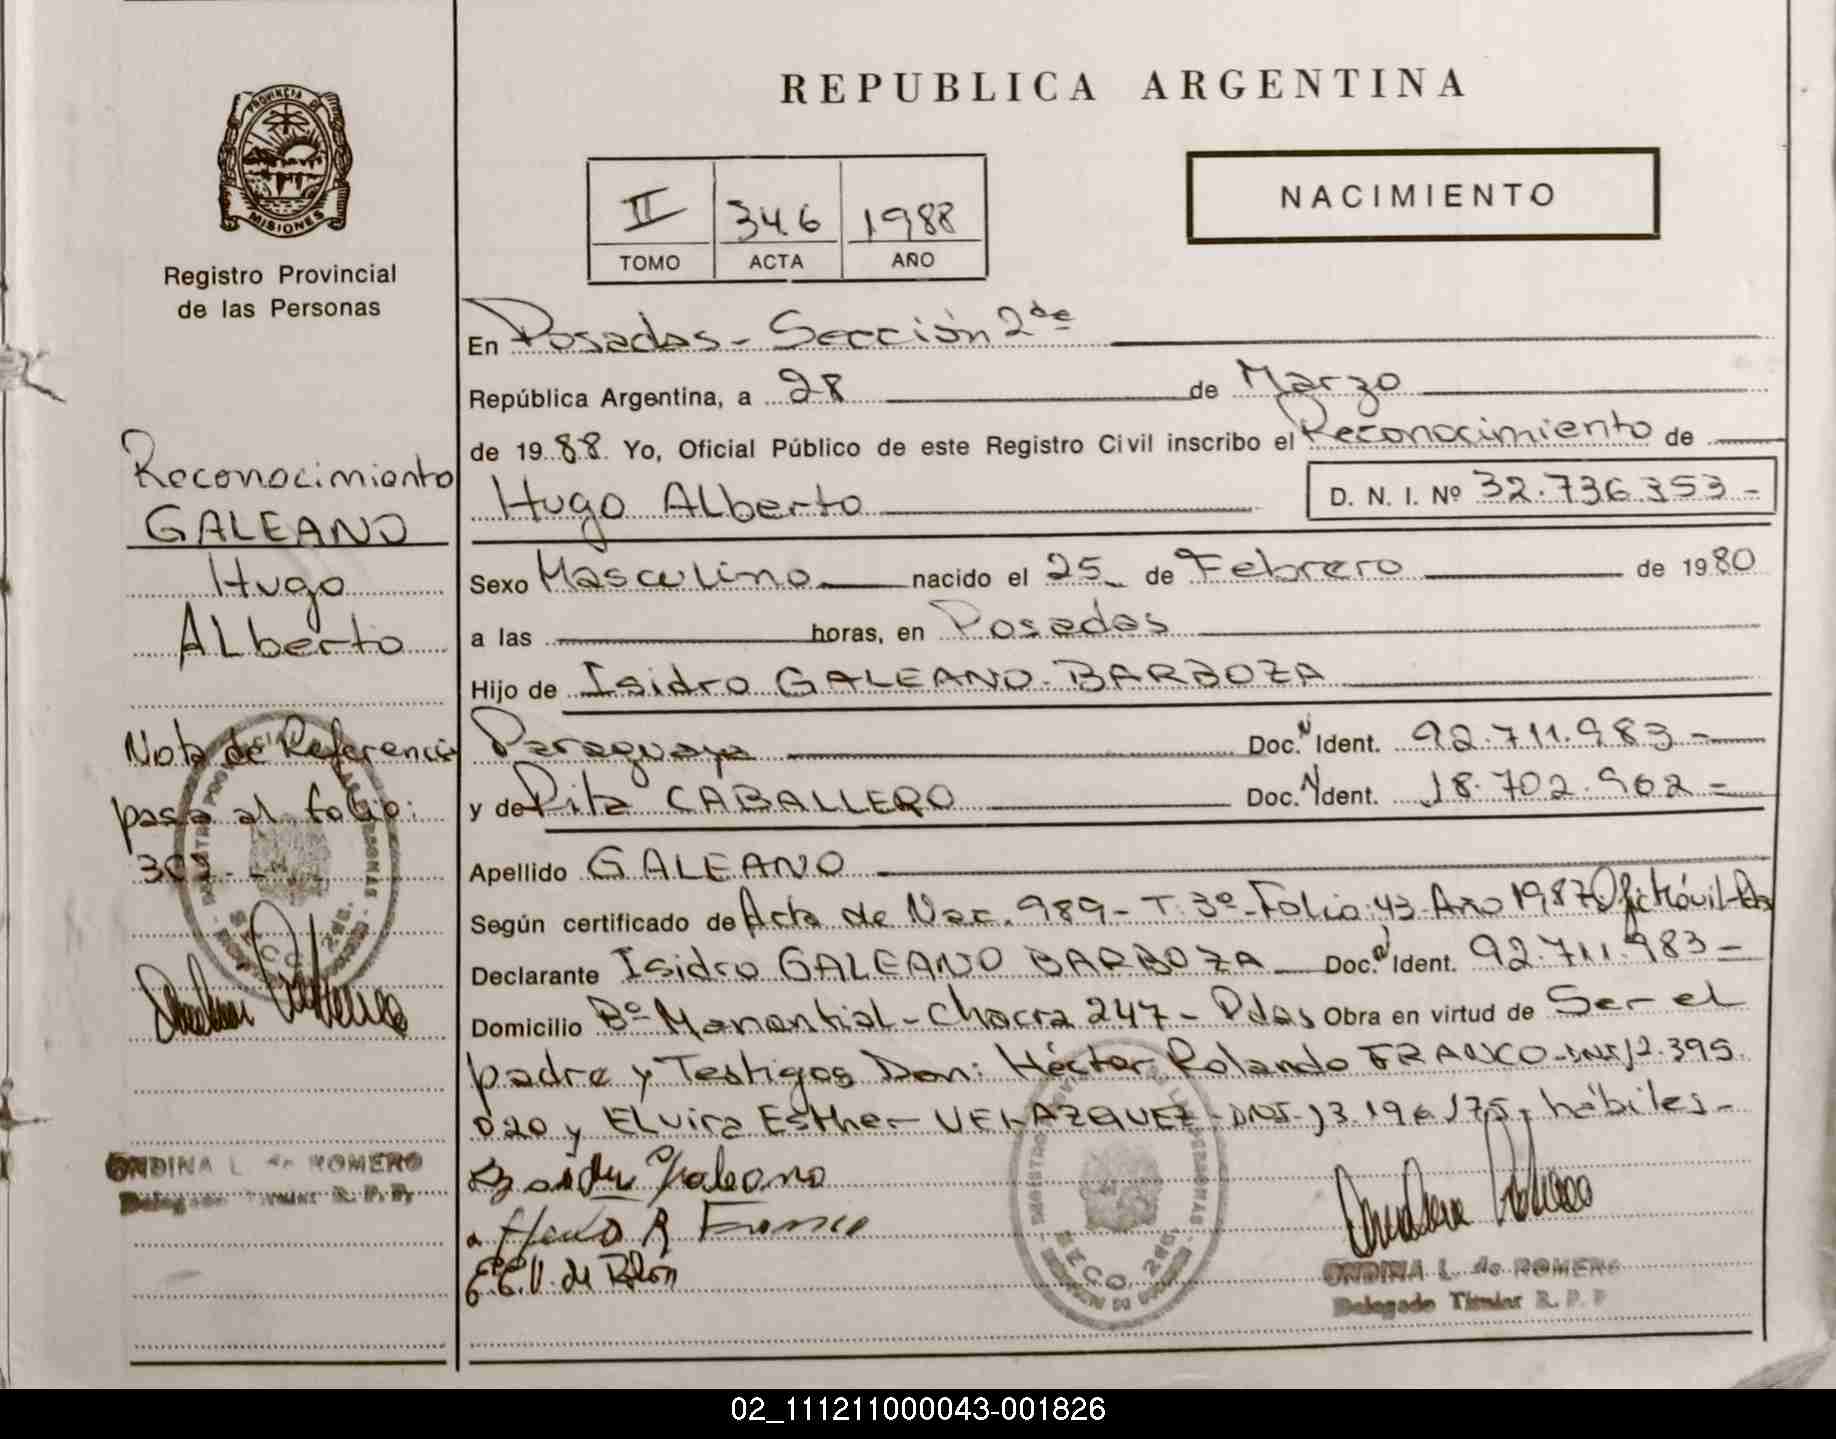 REPUBLICA ARGENTINA
PROVINCIA DE
MISIONES
Registro Provincial
de las Personas
NACIMIENTO
II 346 1988
TOMO ACTA AÑO
Reconocimiento
GALEANO
Hugo
Alberto
Nota de Referencia
pasa al folio:
ONDINA L. de ROMERO
Delegado Titular R. P. P.
En Posadas - Sección 2da
República Argentina, a 28 de Marzo
de 1988. Yo, Oficial Público de este Registro Civil inscribo el Reconocimiento de
Hugo Alberto D. N. I. Nº 32.736.353 -
Sexo Masculino nacido el 25 de Febrero de 1980
a las horas, en Posadas
Hijo de Isidro GALEANO BARBOZA
Paraguaya Doc. N Ident. 92.711.983 -
y de Rita CABALLERO Doc. N Ident. 18.702.962 -
Apellido GALEANO
Según certificado de Acta de Nac. 989 - T. 3º - Folio 43 - Año 1987 Ofic. Móvil
Declarante Isidro GALEANO BARBOZA Doc. N Ident. 92.711.983 -
Domicilio Bº Manantial - Chacra 247 - Pdas Obra en virtud de Ser el
padre y Testigos Don: Héctor Rolando FRANCO - DNI 12.395.
020 y Elvira Esther VELAZQUEZ - DNI - 13.196.175, hábiles -
Galeano
R Franco
E.E.V. de Rolon
ONDINA L. de ROMERO
Delegado Titular R. P. P
02_111211000043-001826